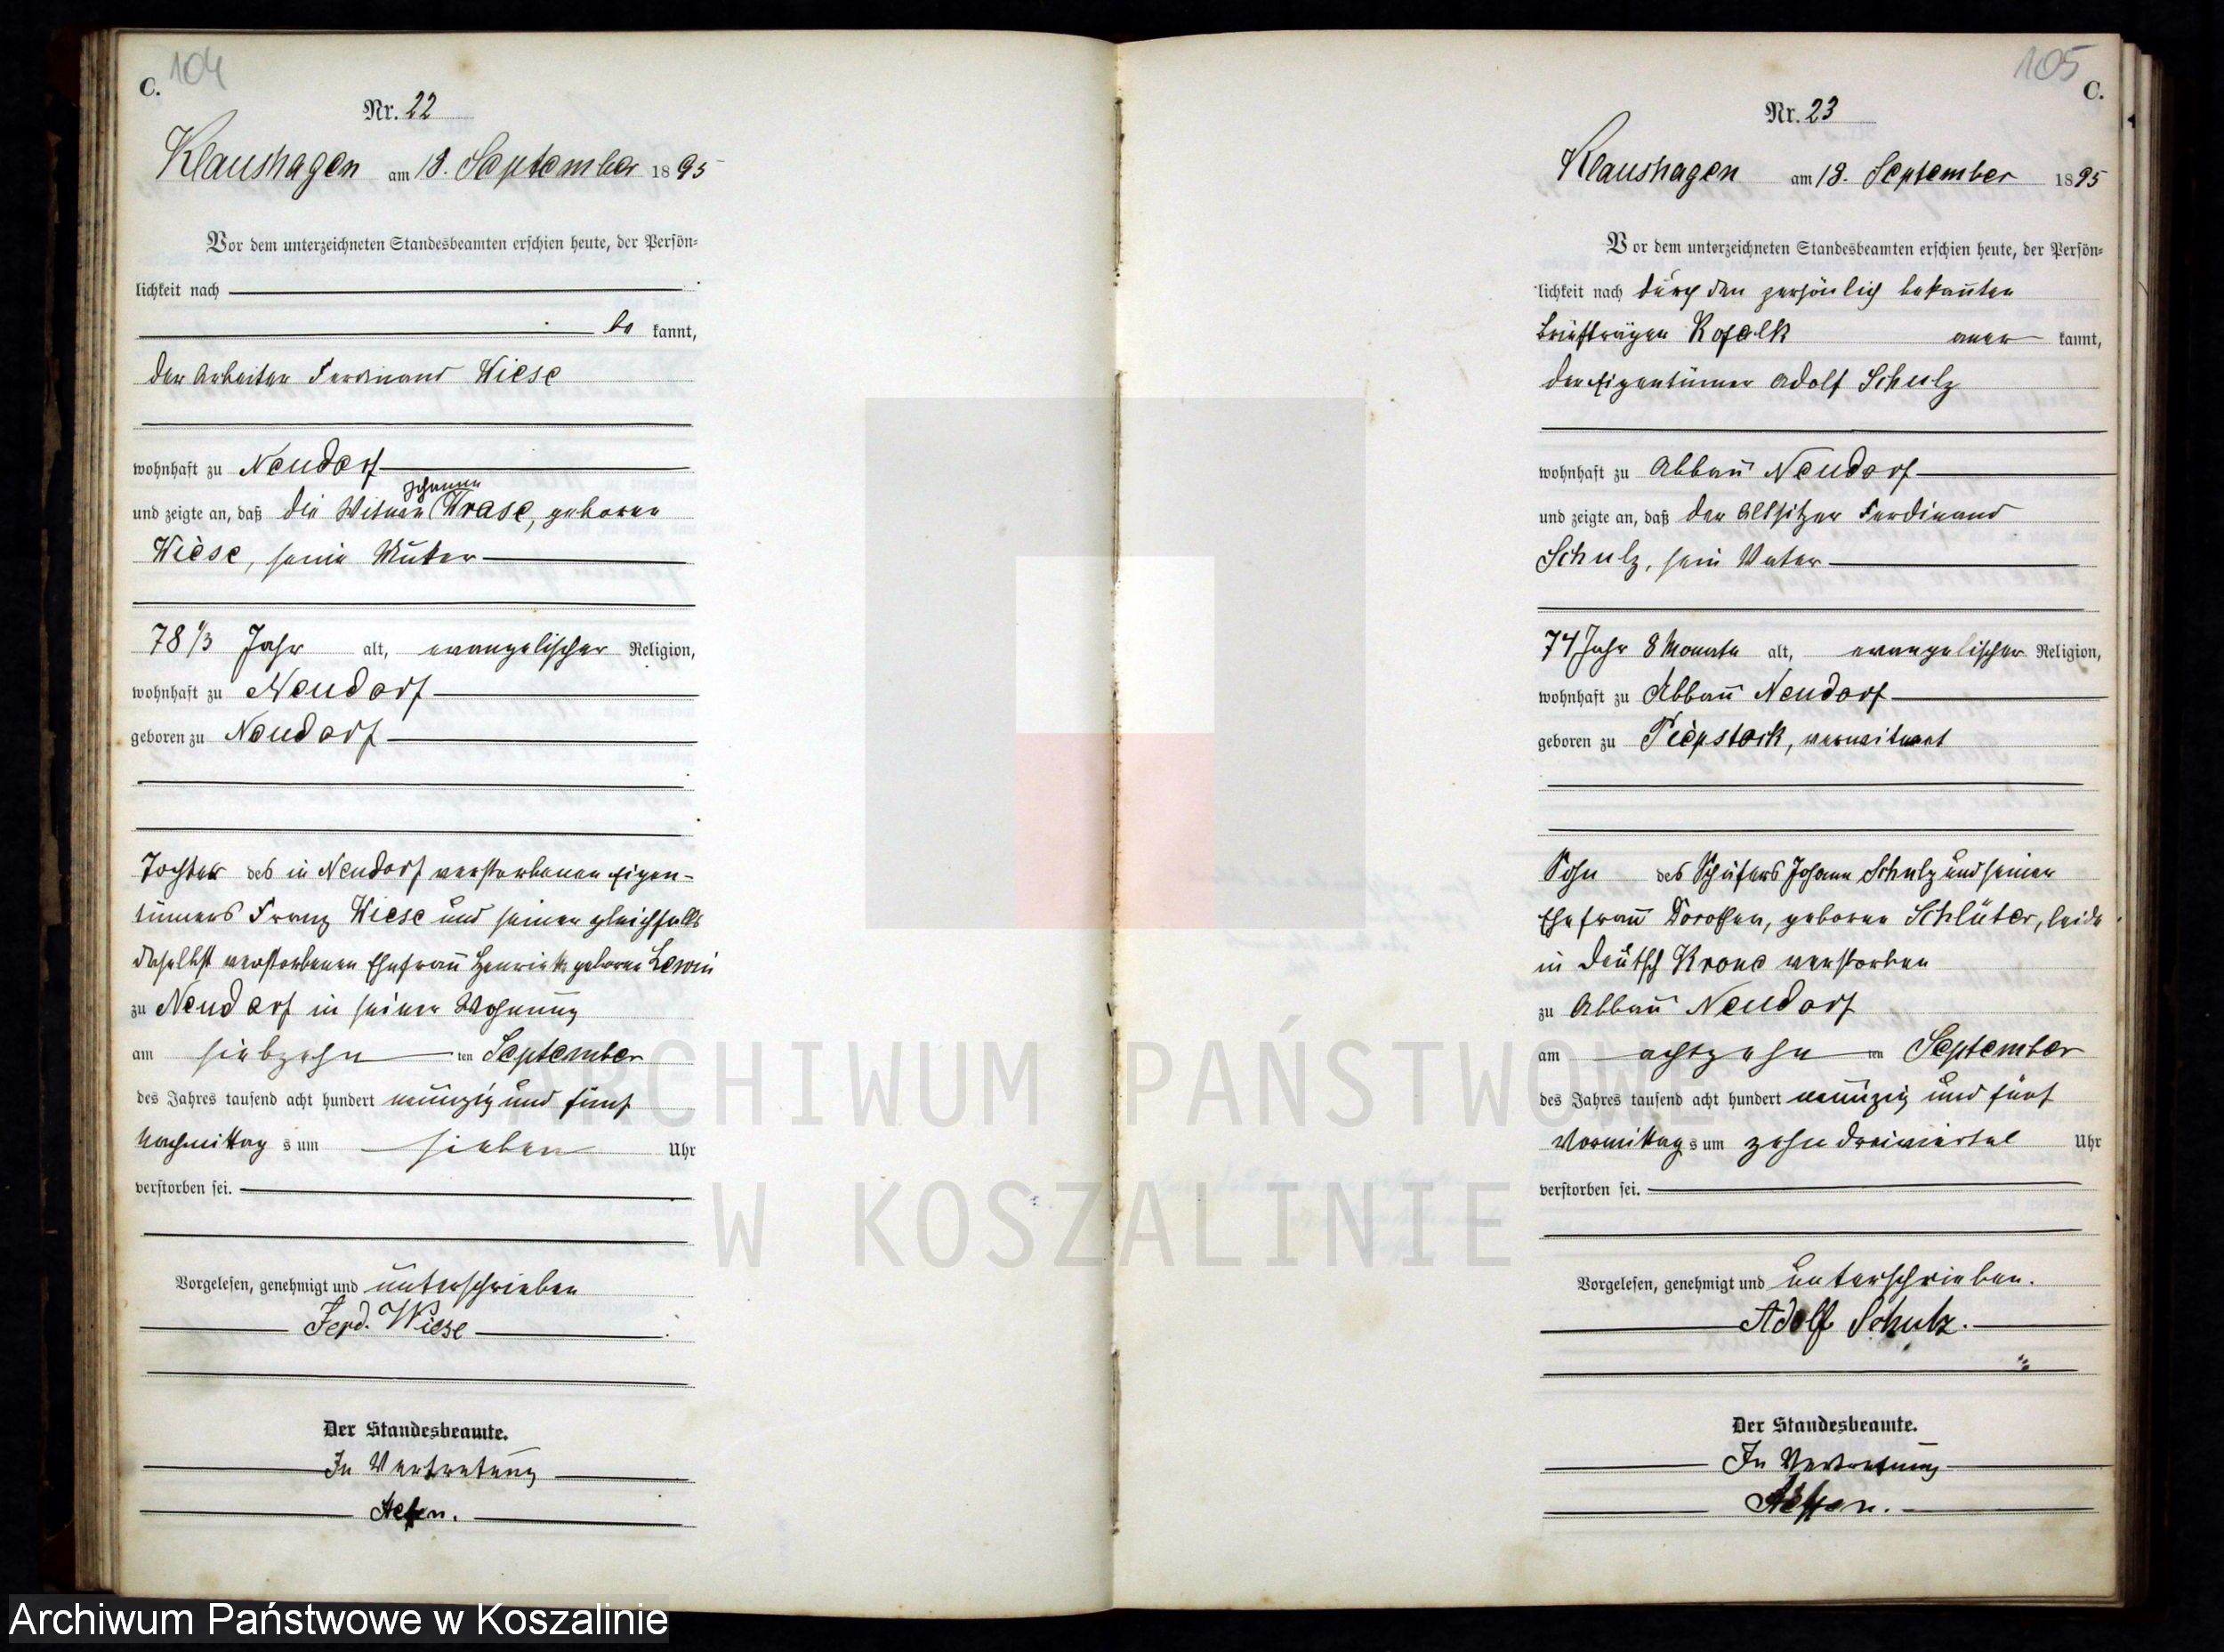 C. 104
Nr. 22
Klaushagen am 18. September 1895
Vor dem unterzeichneten Standesbeamten erschien heute, der Persön-
lichkeit nach
be kannt,
der Arbeiter Ferdinand Wiese
wohnhaft zu Neudorf
und zeigte an, daß die Witwe Wrase, geborene
Wiese, seine Mutter
78 1/3 Jahr alt, evangelischer Religion,
wohnhaft zu Neudorf
geboren zu Neudorf
Tochter des in Neudorf verstorbenen Eigen-
tümers Franz Wiese und seiner gleichfalls
daselbst verstorbenen Ehefrau Henriette geborene
zu Neudorf in seiner Wohnung
am siebzehn ten September
des Jahres tausend acht hundert neunzig und fünf
Nachmittag s um sieben Uhr
verstorben sei.
Vorgelesen, genehmigt und unterschrieben
Ferd. Wiese
Der Standesbeamte.
In Vertretung
105 C.
Nr. 23
Klaushagen am 18. September 1895
Vor dem unterzeichneten Standesbeamten erschien heute, der Persön-
lichkeit nach durch den persönlich bekannten
Briefträger aner kannt,
der Eigentümer Adolf Schulz
wohnhaft zu Abbau Neudorf
und zeigte an, daß der Altsitzer Ferdinand
Schulz, sein Vater
74 Jahr 8 Monate alt, evangelischer Religion,
wohnhaft zu Abbau Neudorf
geboren zu Piepstock, verwitwet
Sohn des Schäfers Johann Schulz und seiner
Ehefrau Dorothea, geborene Schlüter, beide
in Deutsch Krone verstorben
zu Abbau Neudorf
am achtzehn ten September
des Jahres tausend acht hundert neunzig und fünf
Vormittag s um zehn dreiviertel Uhr
verstorben sei.
Vorgelesen, genehmigt und unterschrieben.
Adolf Schulz.
Der Standesbeamte.
In Vertretung
ARCHIWUM PAŃSTWOWE
W KOSZALINIE
Archiwum Państwowe w Koszalinie